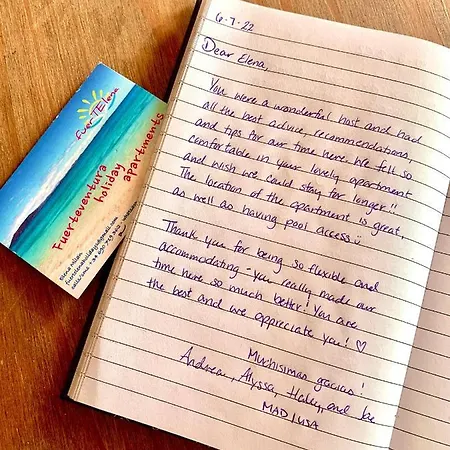 6·7·22
Dear Elena,
You were a wonderful host and had
all the best advice, recommendations,
and tips for our time here. We felt so
comfortable in your lovely apartment
and wish we could stay for longer!!
The location of the apartment is great,
as well as having pool access
Thank you for being so flexible and
accommodating - you really made our
time here so much better! You are
the best and we appreciate you! ♡
Muchisimas gracias!
Andreau, Alyssa, Haley, and Joe
MAD | USA
FuerTElena
Fuerteventura
holiday
apartments